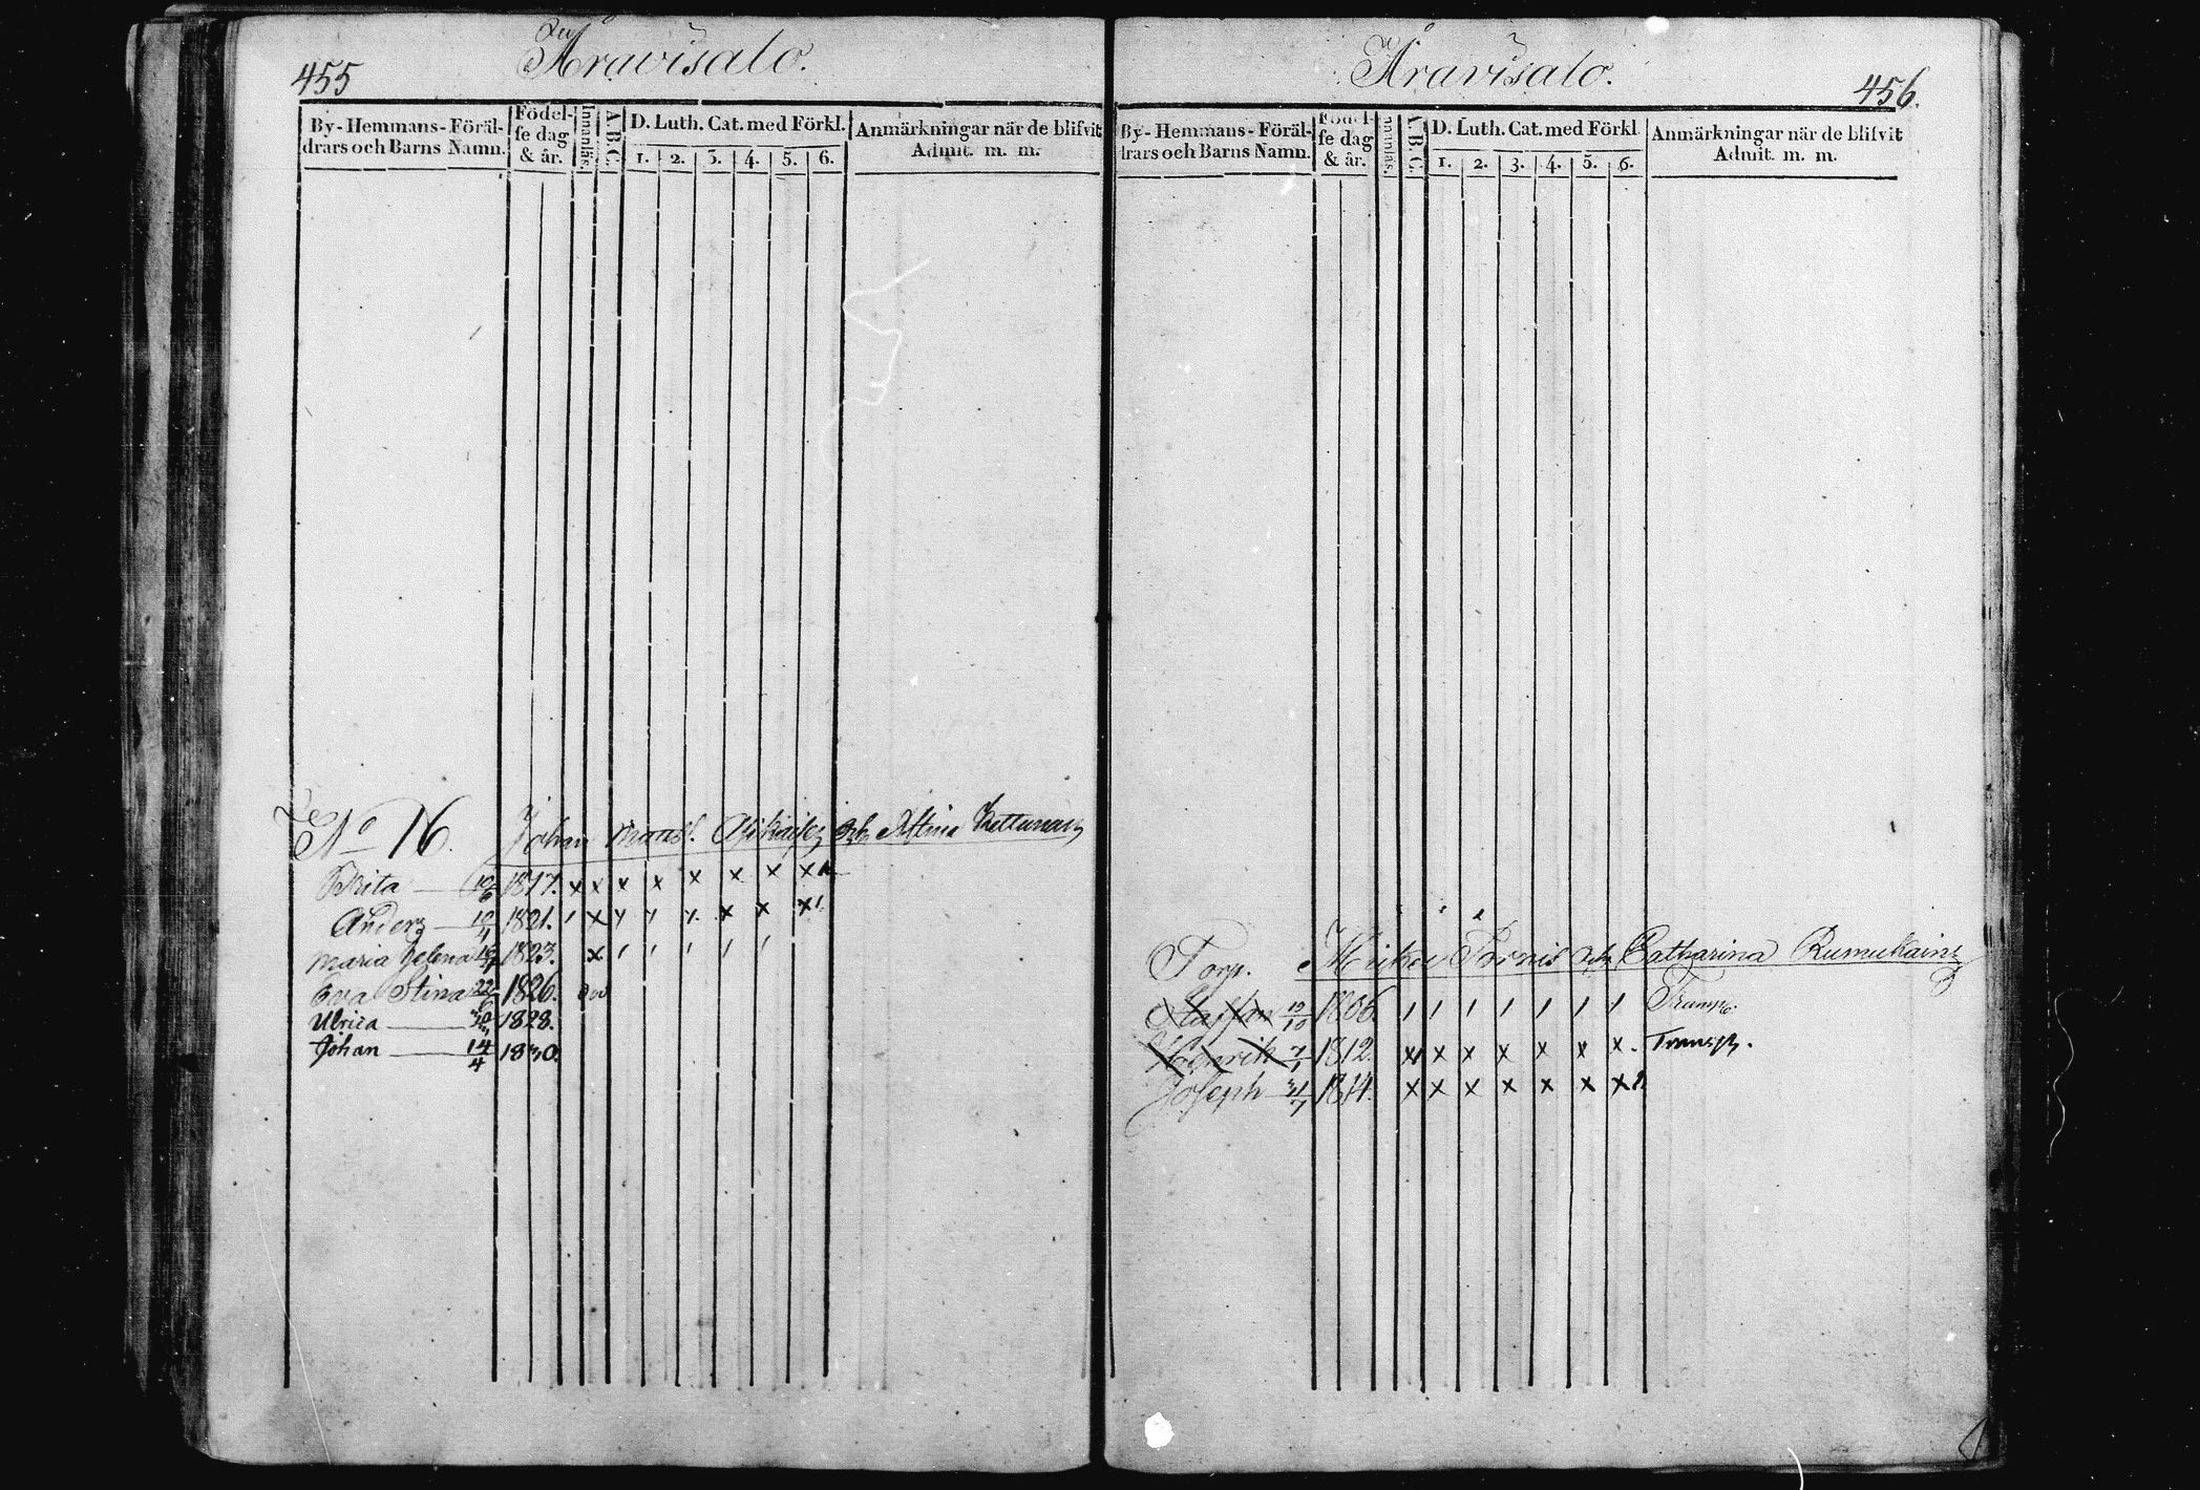 455
Åravisalo.
By-Hemmans-Föräl-
drars och Barns Namn.
Födel-
se dag
& år.
Innanläs.
A.B.C.
D. Luth. Cat. med Förkl.
1. 2. 3. 4. 5. 6.
Anmärkningar när de blifvit
Admit. m. m.
No 16. Johan Matts. och Stina Kettunen
Brita 10/6 1817. x x x x x x x x
Anders 10/4 1821. / x x x x x x x
Maria Helena 1823. x / / / / /
Eva Stina 22/6 1826.
Ulrica 1828.
Johan 14/4 1830.
Åravisalo.
456.
By-Hemmans-Föräl-
drars och Barns Namn.
Födel-
se dag
& år.
Innanläs.
A.B.C.
D. Luth. Cat. med Förkl.
1. 2. 3. 4. 5. 6.
Anmärkningar när de blifvit
Admit. m. m.
Torp. Catharina
Staffan 10/10 1806. / / / / / / / Transp.
Henrik 7/1 1812. x x x x x x x. Transp.
Joseph 31/7 1814. x x x x x x x